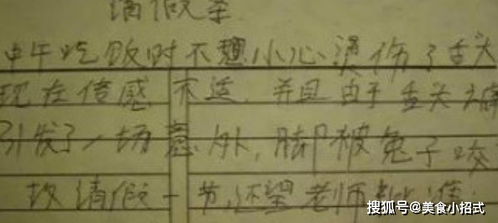 请假条
中午吃饭时不想小心烫伤了舌头
现在倍感不适，并且由于舌头痛
引发了一场意外，脚被兔子咬
故请假一节，还望老师批准
搜狐号@美食小招式